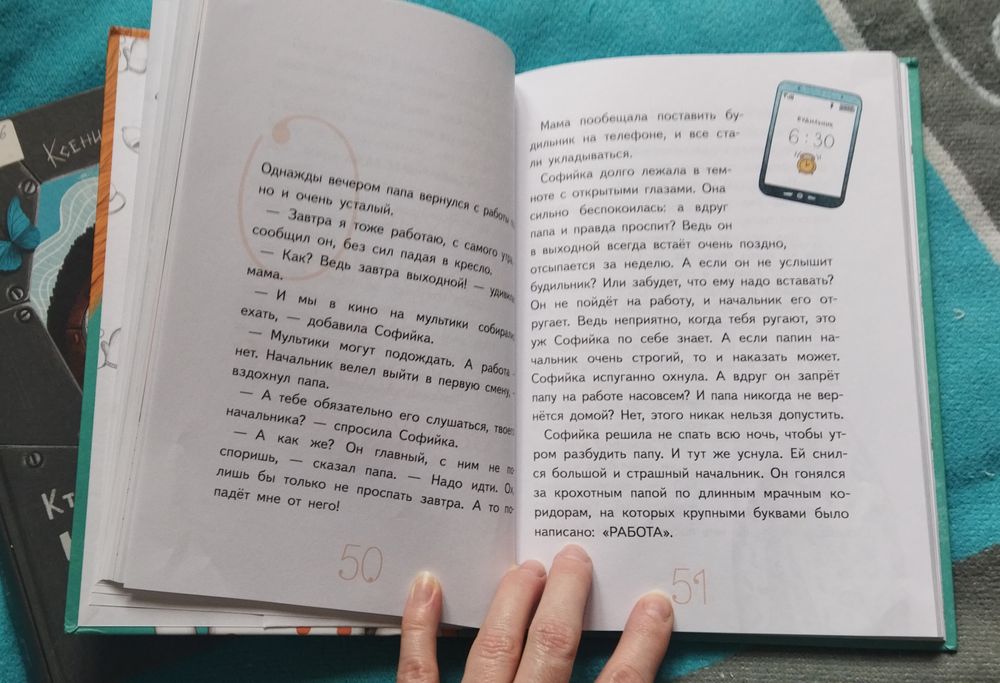 Ксени
Кт
Однажды вечером папа вернулся с работы
но и очень усталый.
— Завтра я тоже работаю, с самого утра,
сообщил он, без сил падая в кресло.
— Как? Ведь завтра выходной! — удиви
мама.
— И мы в кино на мультики собирали
ехать, — добавила Софийка.
— Мультики могут подождать. А работа -
нет. Начальник велел выйти в первую смену, -
вздохнул папа.
— А тебе обязательно его слушаться, твоего
начальника? — спросила Софийка.
— А как же? Он главный, с ним не по-
споришь, — сказал папа. — Надо идти. Ох,
лишь бы только не проспать завтра. А то по-
падёт мне от него!
50
Мама пообещала поставить бу-
дильник на телефоне, и все ста-
ли укладываться.
Софийка долго лежала в тем-
ноте с открытыми глазами. Она
сильно беспокоилась: а вдруг
папа и правда проспит? Ведь он
в выходной всегда встаёт очень поздно,
отсыпается за неделю. А если он не услышит
будильник? Или забудет, что ему надо вставать?
Он не пойдёт на работу, и начальник его от-
ругает. Ведь неприятно, когда тебя ругают, это
уж Софийка по себе знает. А если папин на-
чальник очень строгий, то и наказать может.
Софийка испуганно охнула. А вдруг он запрёт
папу на работе насовсем? И папа никогда не вер-
нётся домой? Нет, этого никак нельзя допустить.
Софийка решила не спать всю ночь, чтобы ут-
ром разбудить папу. И тут же уснула. Ей снил-
ся большой и страшный начальник. Он гонялся
за крохотным папой по длинным мрачным ко-
ридорам, на которых крупными буквами было
написано: «РАБОТА».
БУДИЛЬНИК
6:30
51